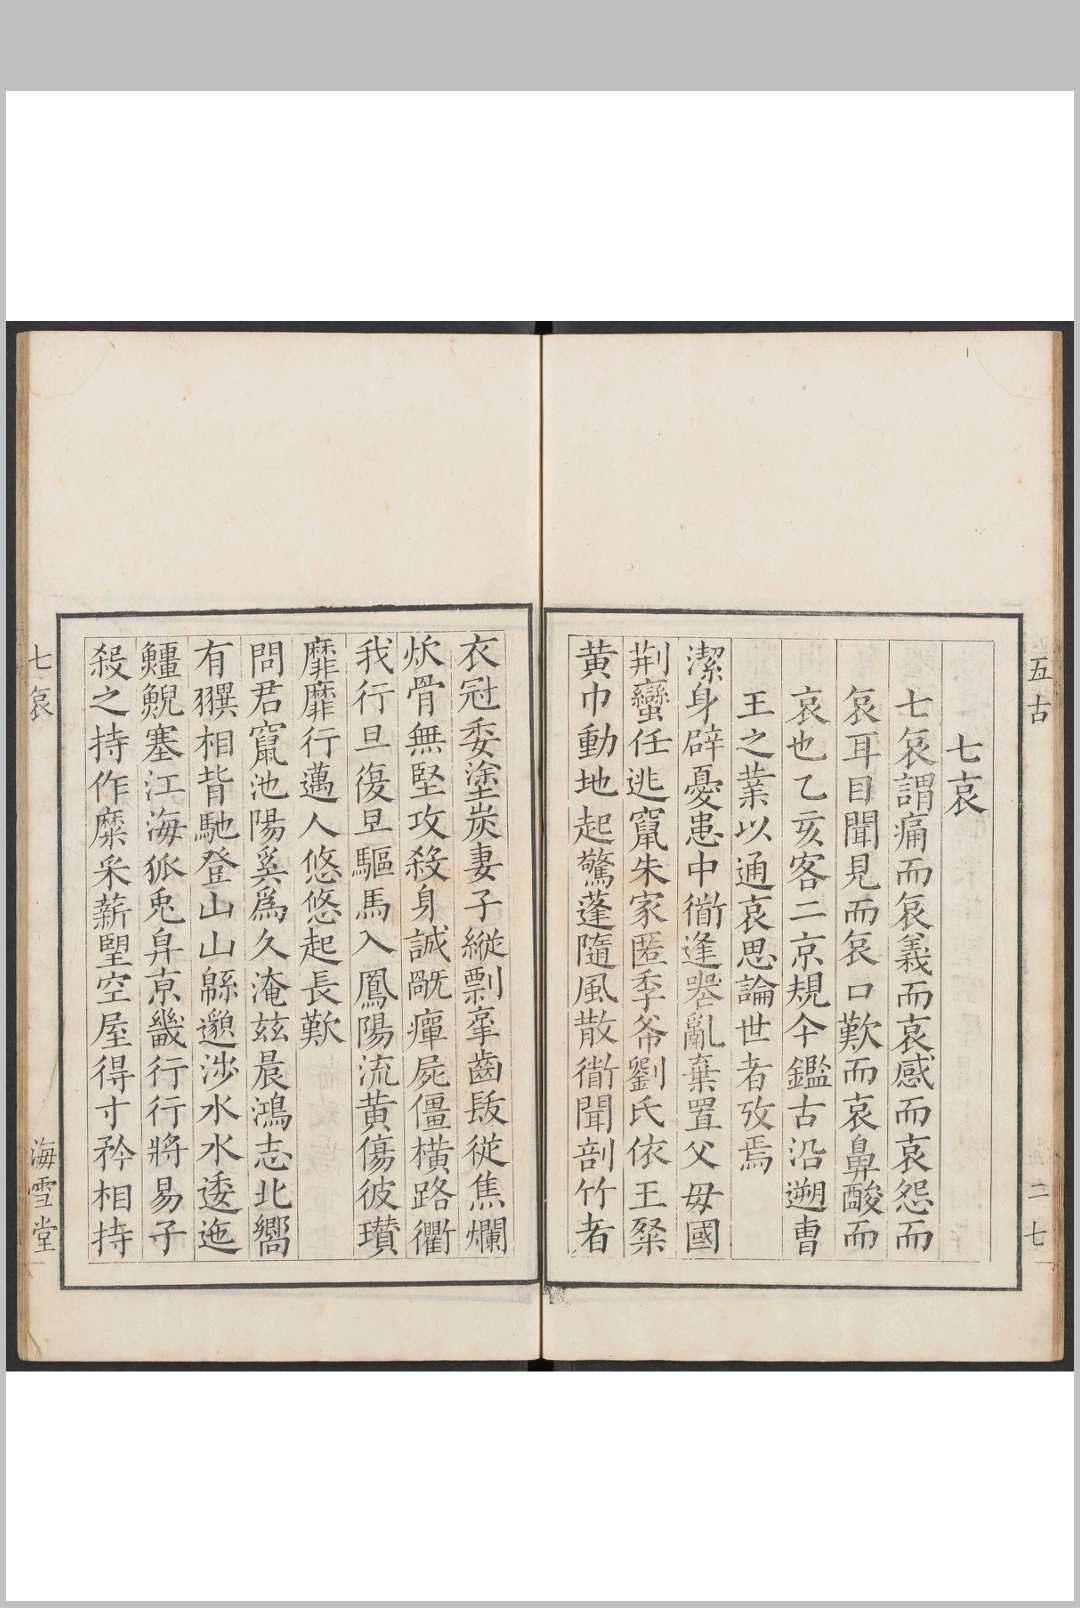 五古
二七
七哀
七哀謂痛而哀義而哀感而哀怨而
哀耳目聞見而哀口歎而哀鼻酸而
哀也乙亥客二京規今鑑古沿遡曹
王之業以通哀思論世者攷焉
潔身辟憂患中衢逢喪亂棄置父毋國
荆蠻任逃竄朱家匿季布劉氏依王粲
黄巾動地起驚蓬隨風散衢聞剖竹者
衣冠委塗炭妻子縱剽掠齒髮從焦爛
炊骨無堅攻殺身誠既癉屍僵横路衢
我行旦復旦驅馬入鳳陽流黄傷彼瓚
靡靡行邁人悠悠起長歎
問君竄池陽奚爲久淹兹晨鴻志北嚮
有獧相背馳登山山緜邈涉水水逶迤
鱷鯢塞江海狐兎弁京畿行行將易子
殺之持作糜采薪朢空屋得寸矜相持
七哀
海雪堂